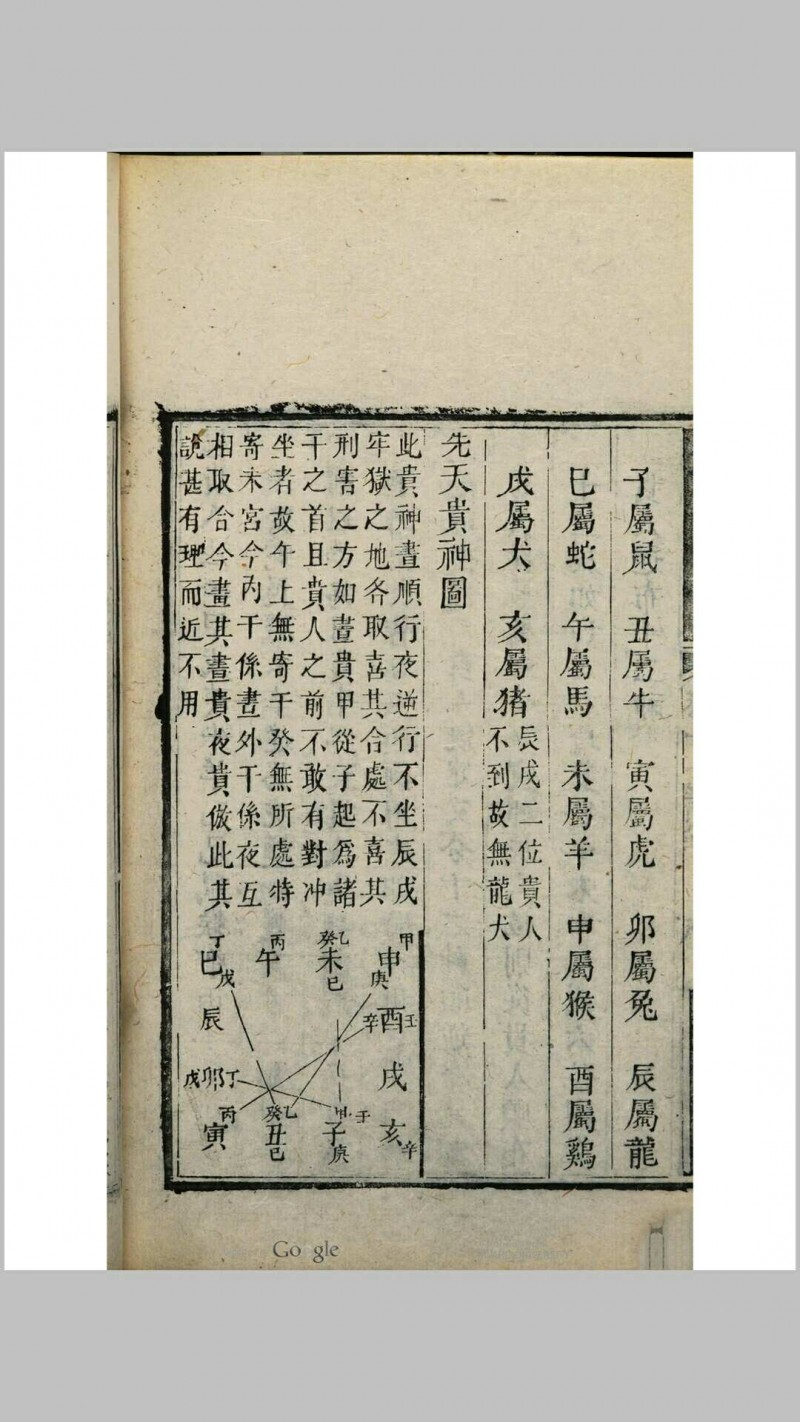 子屬鼠　丑屬牛　寅屬虎　卯屬兔　辰屬龍
巳屬蛇　午屬馬　未屬羊　申屬猴　酉屬鷄
戌屬犬　亥屬猪　辰戌二位貴人
不到故無龍犬
先天貴神圖
此貴神晝順行夜逆行不坐辰戌
牢獄之地各取喜其合處不喜其
刑害之方如晝貴甲從子起爲諸
干之首且貴人之前不敢有對冲
坐者故午上無寄干癸無所處特
寄未宮今內干係晝外干係夜互
相取合今畫其晝貴夜貴倣此其
說甚有理而近不用
甲
申
庚
乙
癸
未
巳
丙
午
丁
巳
戊
壬
酉
辛
辰
戌
丁
卯
戊
亥
辛
壬
甲
子
庚
乙
癸
丑
巳
丙
寅
Go gle